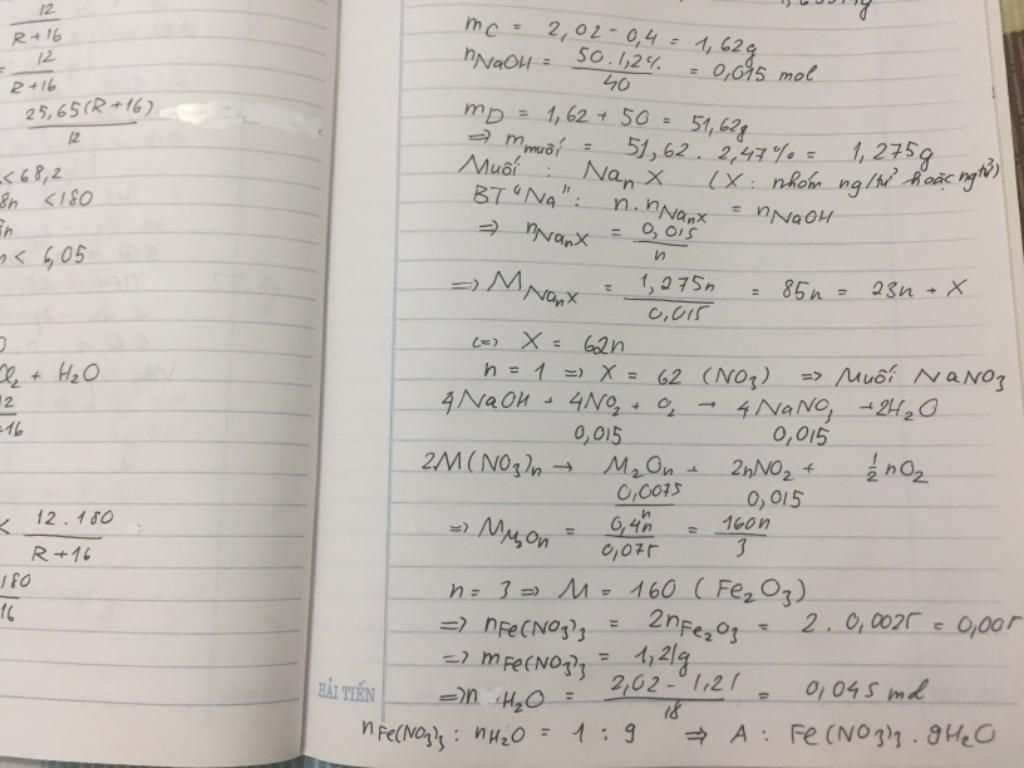 12
R+16
= 12
R+16
25,65(R+16)
12
<68,2
8n <180
n< 6,05
O₂ + H₂O
12
16
< 12.180
R+16
180
16
m_C = 2,02 - 0,4 = 1,62g
n_NaOH = 50.1,2% / 40 = 0,015 mol
m_D = 1,62 + 50 = 51,62g
=> m_muối = 51,62 . 2,47% = 1,275g
Muối : Na_nX (X: nhóm ng/tử hoặc ng tử)
BT "Na" : n.n_Na_nX = n_NaOH
=> n_Na_nX = 0,015 / n
=> M_Na_nX = 1,275n / 0,015 = 85n = 23n + X
<=> X = 62n
n = 1 => X = 62 (NO₃) => Muối NaNO₃
4NaOH + 4NO₂ + O₂ → 4NaNO₃ +2H₂O
0,015 0,015
2M(NO₃)n → M₂On + 2nNO₂ + ½nO₂
0,0075 / n 0,015
=> M_M₂On = 0,4n / 0,075 = 160n / 3
n = 3 => M = 160 (Fe₂O₃)
=> nFe(NO₃)₃ = 2nFe₂O₃ = 2 . 0,0025 = 0,005
=> mFe(NO₃)₃ = 1,21g
=> n H₂O = 2,02 - 1,21 / 18 = 0,045 mol
HẢI TIẾN
nFe(NO₃)₃ : nH₂O = 1 : 9 => A : Fe(NO₃)₃ . 9H₂O